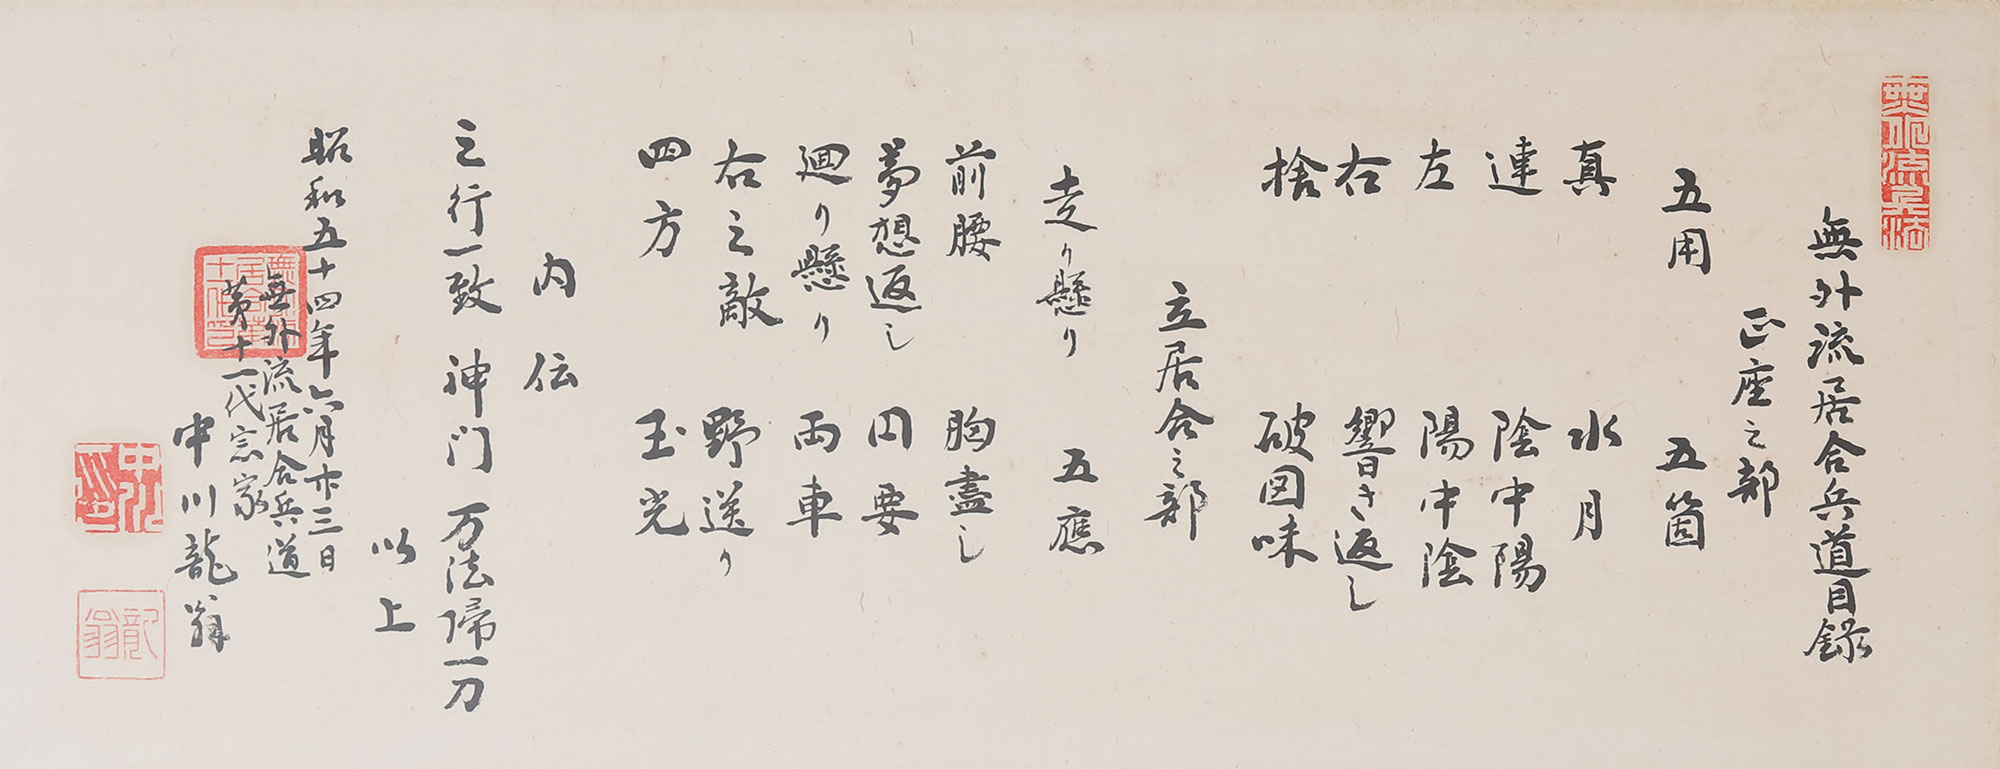 無外流居合兵道目録
正座之部
五用 五箇
真 水月
連 陰中陽
左 陽中陰
右 響き返し
捨 破図味
立居合之部
走り懸り 五應
前腰 胸盡し
夢想返し 円要
廻り懸り 両車
右之敵 野送り
四方 玉光
内伝
之行一致 神門 万法帰一刀
以上
昭和五十四年六月廿三日
無外流居合兵道
第十一代宗家
中川龍翁